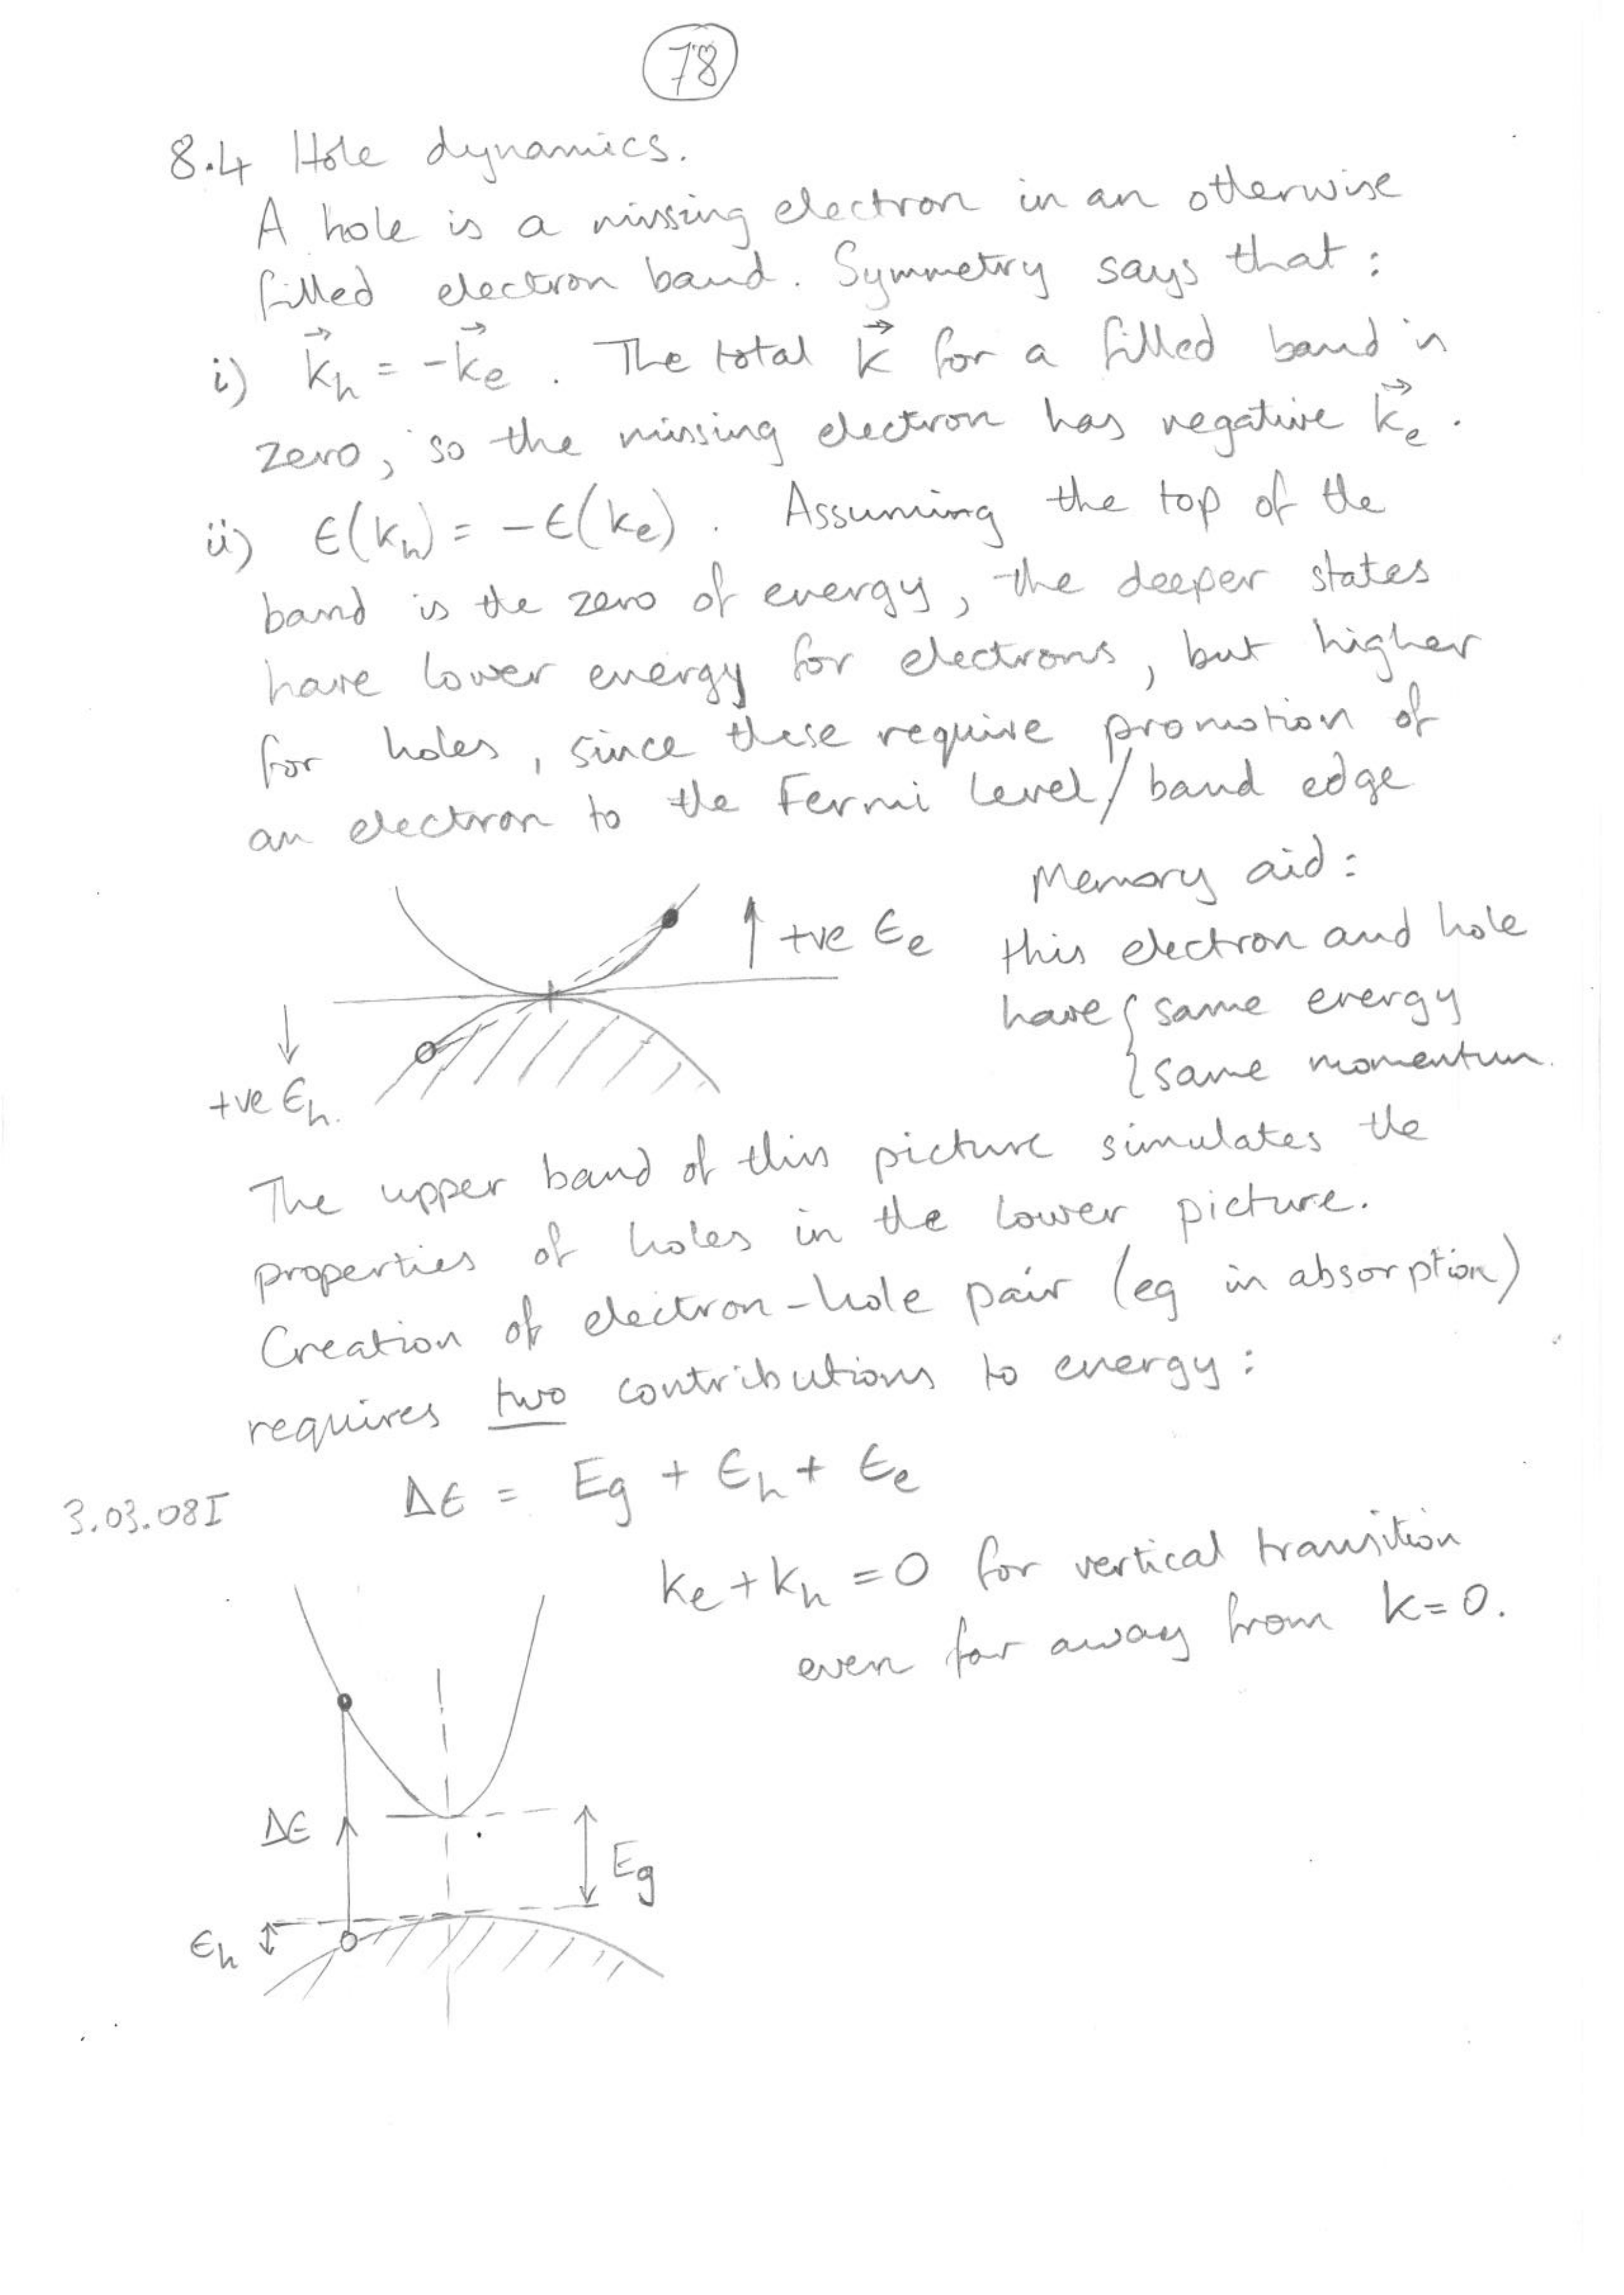 78
8.4 Hole dynamics.
A hole is a missing electron in an otherwise
filled electron band. Symmetry says that:
i) k⃗_h = -k⃗_e. The total k⃗ for a filled band is
zero, so the missing electron has negative k⃗_e.
ii) ϵ(k_h) = -ϵ(k_e). Assuming the top of the
band is the zero of energy, the deeper states
have lower energy for electrons, but higher
for holes, since these require promotion of
an electron to the Fermi Level/band edge
Memory aid:
+ve ϵ_e
this electron and hole
have { same energy
{ same momentum.
+ve ϵ_h.
The upper band of this picture simulates the
properties of holes in the lower picture.
Creation of electron-hole pair (eg in absorption)
requires two contributions to energy:
Δϵ = Eg + ϵ_h + ϵ_e
3.03.08I
k_e + k_h = 0 for vertical transition
even far away from k=0.
Δϵ
Eg
ϵ_h